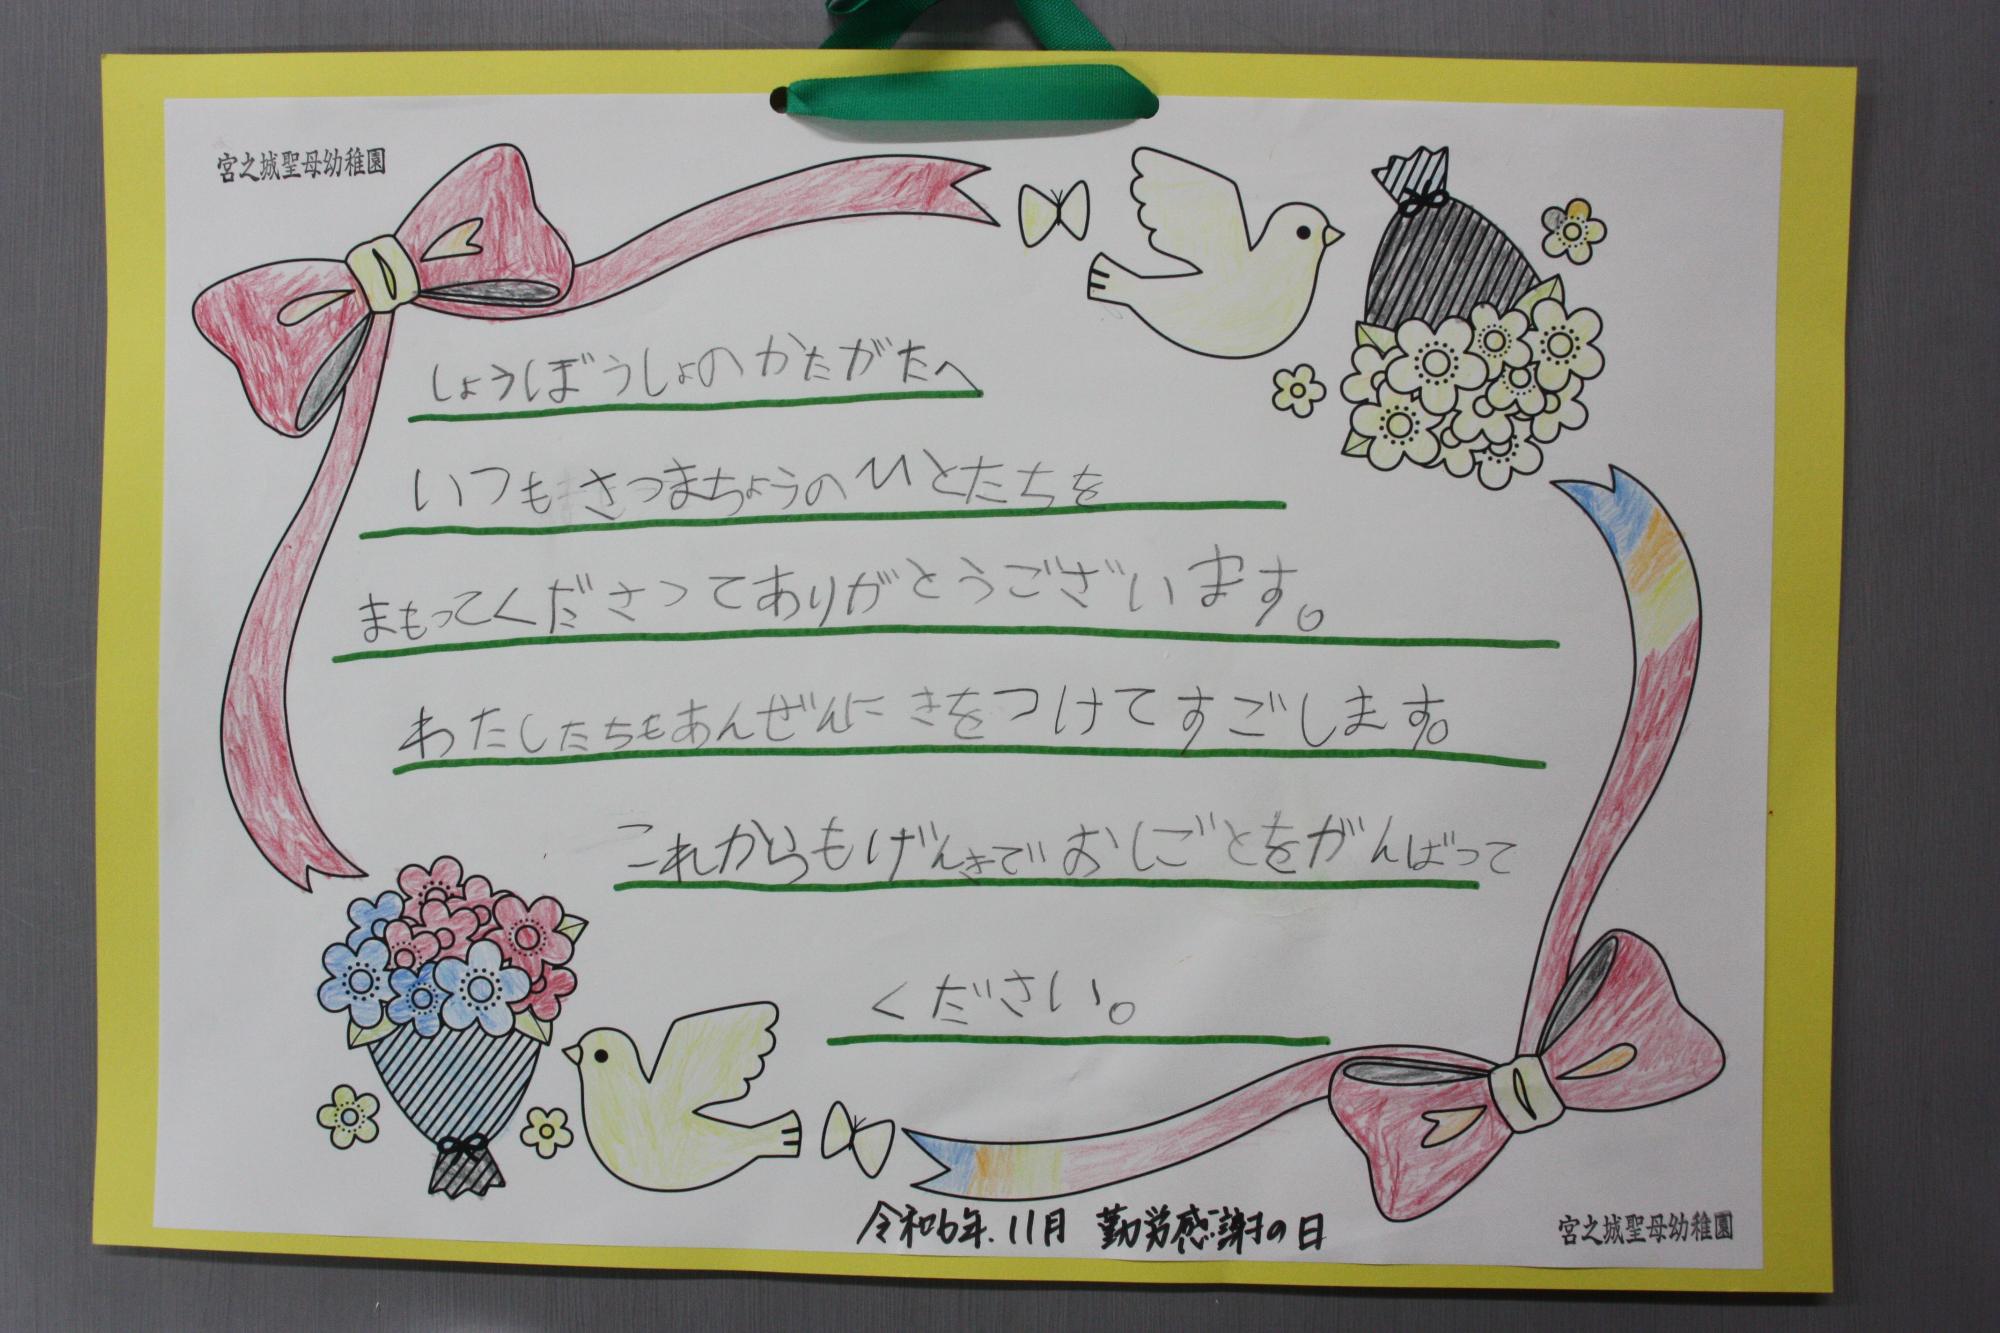 宮之城聖母幼稚園
しょうぼうしょのかたがたへ
いつもさつまちょうのひとたちを
まもってくださってありがとうございます。
わたしたちもあんぜんにきをつけてすごします。
これからもげんきでおしごとをがんばって
ください。
令和6年.11月 勤労感謝の日
宮之城聖母幼稚園